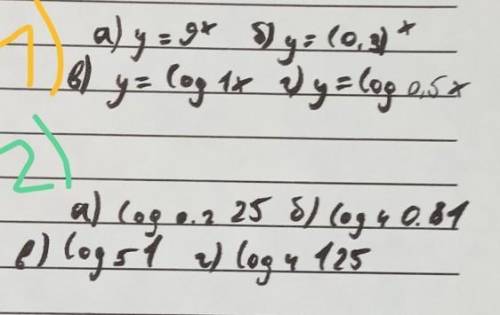 1) а) y = 9ˣ б) y = (0,3)ˣ
в) y = log 1x г) y = log 0,5x
2)
а) log 0.2 25 б) log 4 0.81
в) log 5 1 г) log 4 125